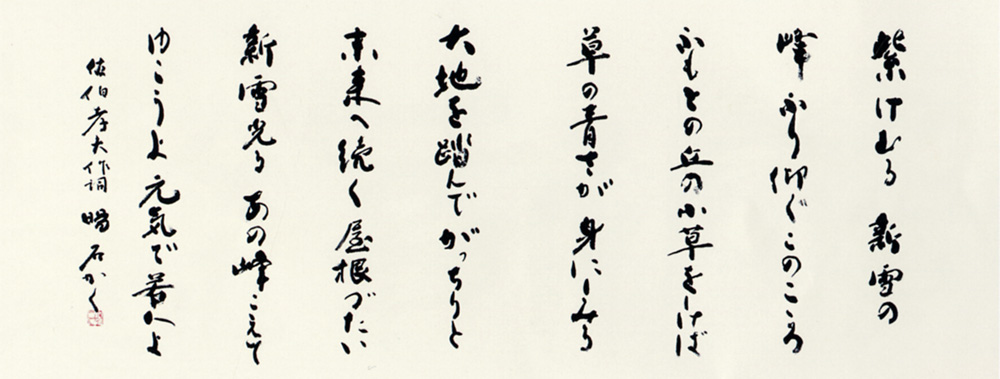 紫けむる 新雪の
峰ふり仰ぐこのこころ
ふもとの丘の小草をしけば
草の青さが 身にしみる
大地を踏んで がっちりと
未来へ続く 屋根づたい
新雪光る あの峰こえて
ゆこうよ 元気で 若人よ
佐伯孝夫作詞 石かく